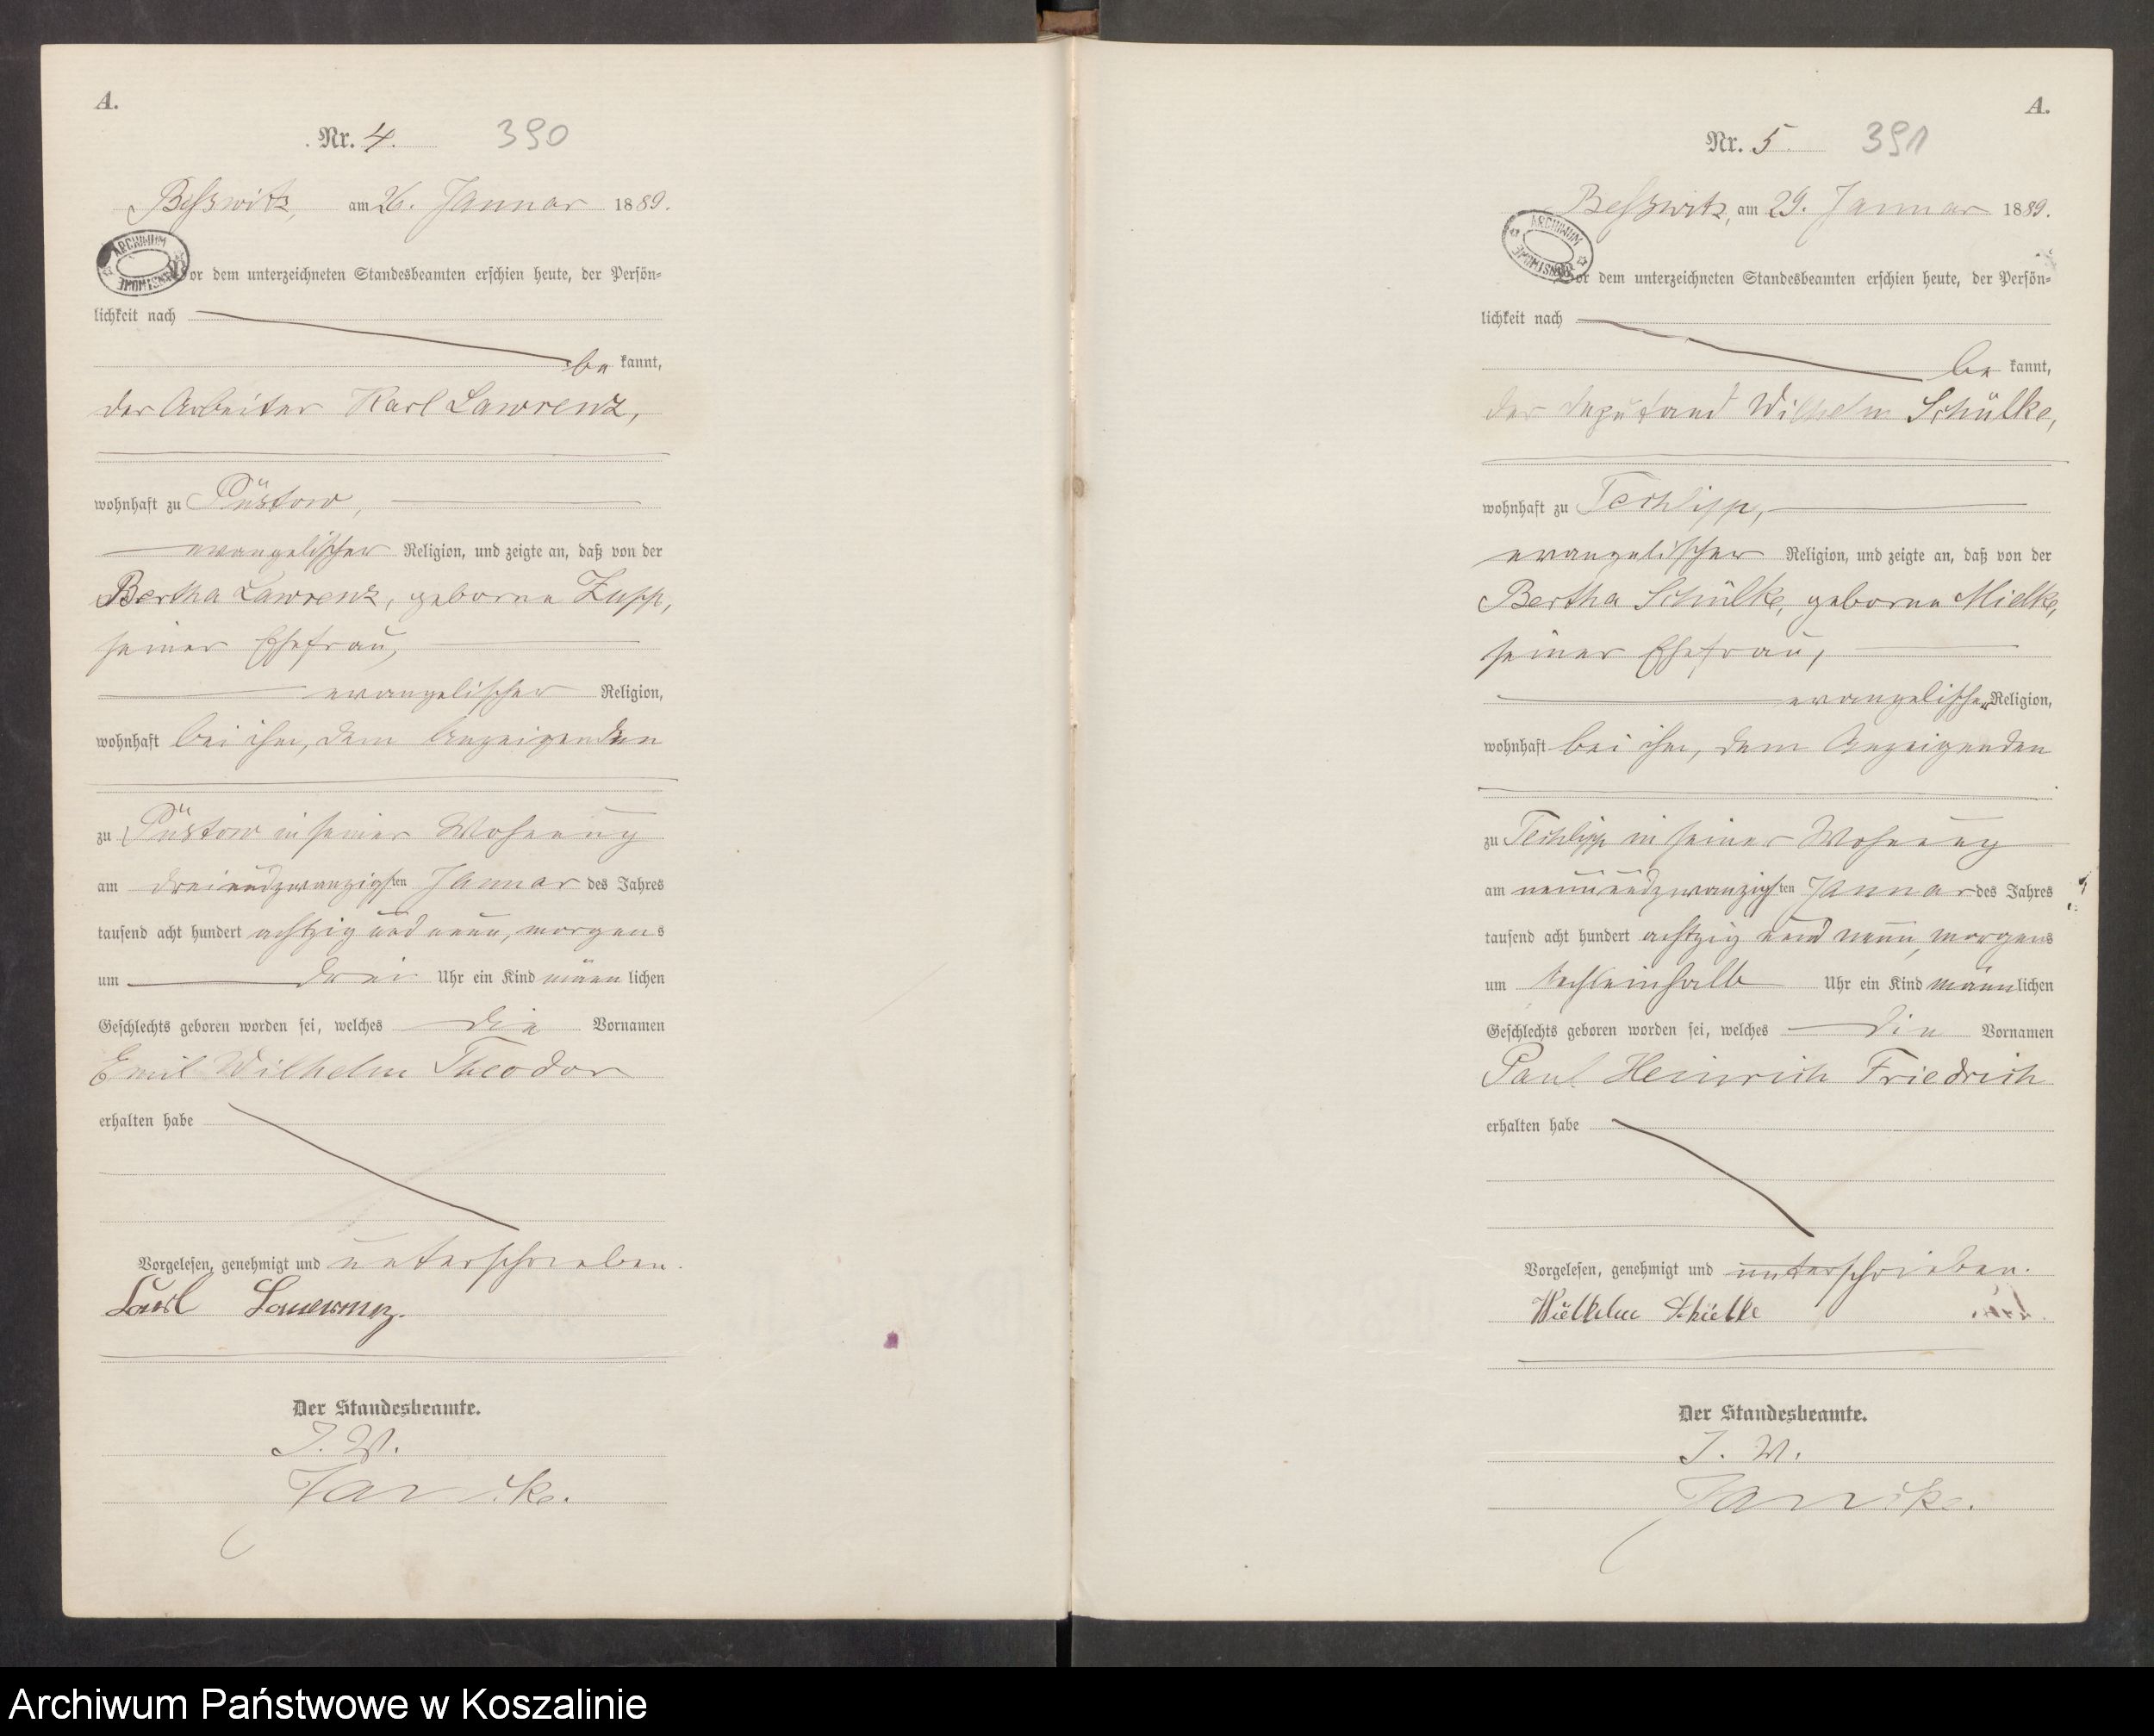 A.
Nr. 4. 390
Beßwitz, am 26. Januar 1889.
ARCHIWUM
Vor dem unterzeichneten Standesbeamten erschien heute, der Persön-
lichkeit nach
be kannt,
der Arbeiter Karl Lawrenz,
wohnhaft zu Püstow,
evangelischer Religion, und zeigte an, daß von der
Bertha Lawrenz, geborne Zupp,
seiner Ehefrau,
evangelischer Religion,
wohnhaft bei ihm, dem Anzeigenden
zu Püstow in seiner Wohnung
am dreiundzwanzigsten Januar des Jahres
tausend acht hundert achtzig und neun, morgens
um drei Uhr ein Kind männlichen
Geschlechts geboren worden sei, welches die Vornamen
Emil Wilhelm Theodor
erhalten habe
Vorgelesen, genehmigt und unterschrieben.
Carl
Der Standesbeamte.
J. V.
A.
Nr. 5. 391
Beßwitz, am 29. Januar 1889.
ARCHIWUM
Vor dem unterzeichneten Standesbeamten erschien heute, der Persön-
lichkeit nach
be kannt,
der Deputand Wilhelm Schülke,
wohnhaft zu Techlipp,
evangelischer Religion, und zeigte an, daß von der
Bertha Schülke, geborne Mielke,
seiner Ehefrau,
evangelischer Religion,
wohnhaft bei ihm, dem Anzeigenden
zu Techlipp in seiner Wohnung
am neunundzwanzigsten Januar des Jahres
tausend acht hundert achtzig und neun, morgens
um Uhr ein Kind männlichen
Geschlechts geboren worden sei, welches die Vornamen
Paul Heinrich Friedrich
erhalten habe
Vorgelesen, genehmigt und unterschrieben.
Wilhelm Schülke
Der Standesbeamte.
J. V.
Archiwum Państwowe w Koszalinie